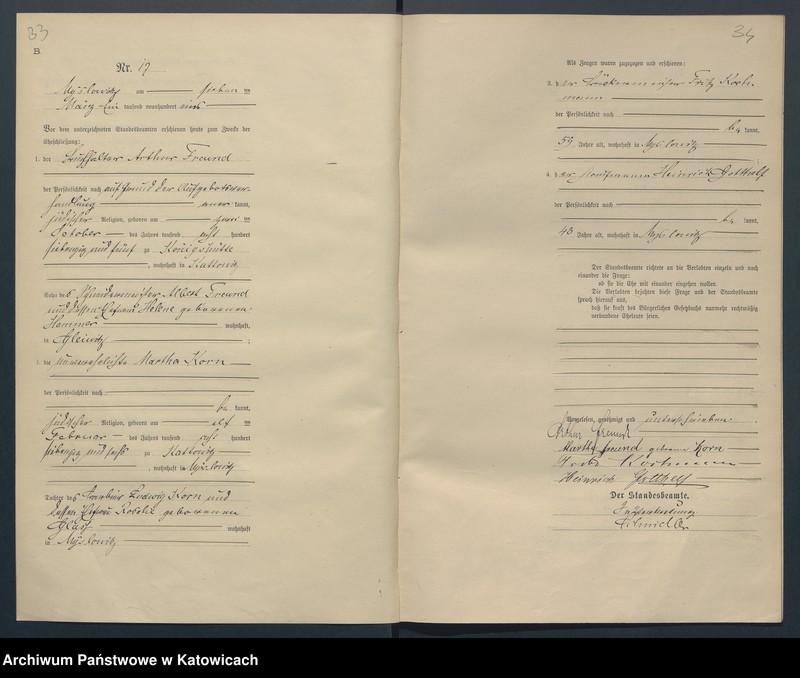 33
B.
Nr. 17
Myslowitz am sieben ten
März Ein tausend neunhundert eins
Vor dem unterzeichneten Standesbeamten erschienen heute zum Zweck der
Eheschließung:
1. der Buchhalter Arthur Freund
der Persönlichkeit nach auf Grund der Aufgebotsver-
handlung aner kannt,
jüdischer Religion, geboren am ten
October des Jahres tausend acht hundert
siebenzig und fünf zu Königshütte
, wohnhaft in Kattowitz
Sohn des Albert Freund
und dessen Ehefrau Helene geborenen
wohnhaft,
in Gleiwitz ;
2. die unverehelichte Martha Korn
der Persönlichkeit nach
be kannt,
jüdischer Religion, geboren am elf ten
Februar des Jahres tausend acht hundert
siebenzig und sechs zu Kattowitz
, wohnhaft in Myslowitz
Tochter des Ludwig Korn und
dessen Ehefrau Rosalie geborenen
Glas wohnhaft
in Myslowitz
34
Als Zeugen waren zugezogen und erschienen:
3. der Fritz Koch-
mann
der Persönlichkeit nach
be kannt,
59 Jahre alt, wohnhaft in Myslowitz
4. der Kaufmann Heinrich Gotthelf
der Persönlichkeit nach
be kannt,
43 Jahre alt, wohnhaft in Myslowitz
Der Standesbeamte richtete an die Verlobten einzeln und nach
einander die Frage:
ob sie die Ehe mit einander eingehen wollen.
Die Verlobten bejahten diese Frage und der Standesbeamte
sprach hierauf aus,
daß sie kraft des Bürgerlichen Gesetzbuchs nunmehr rechtmäßig
verbundene Eheleute seien.
Vorgelesen, genehmigt und unterschrieben
Arthur Freund
Martha Freund geborene Korn
Fritz Kochmann
Heinrich Gotthelf
Der Standesbeamte.
In Vertretung
Archiwum Państwowe w Katowicach